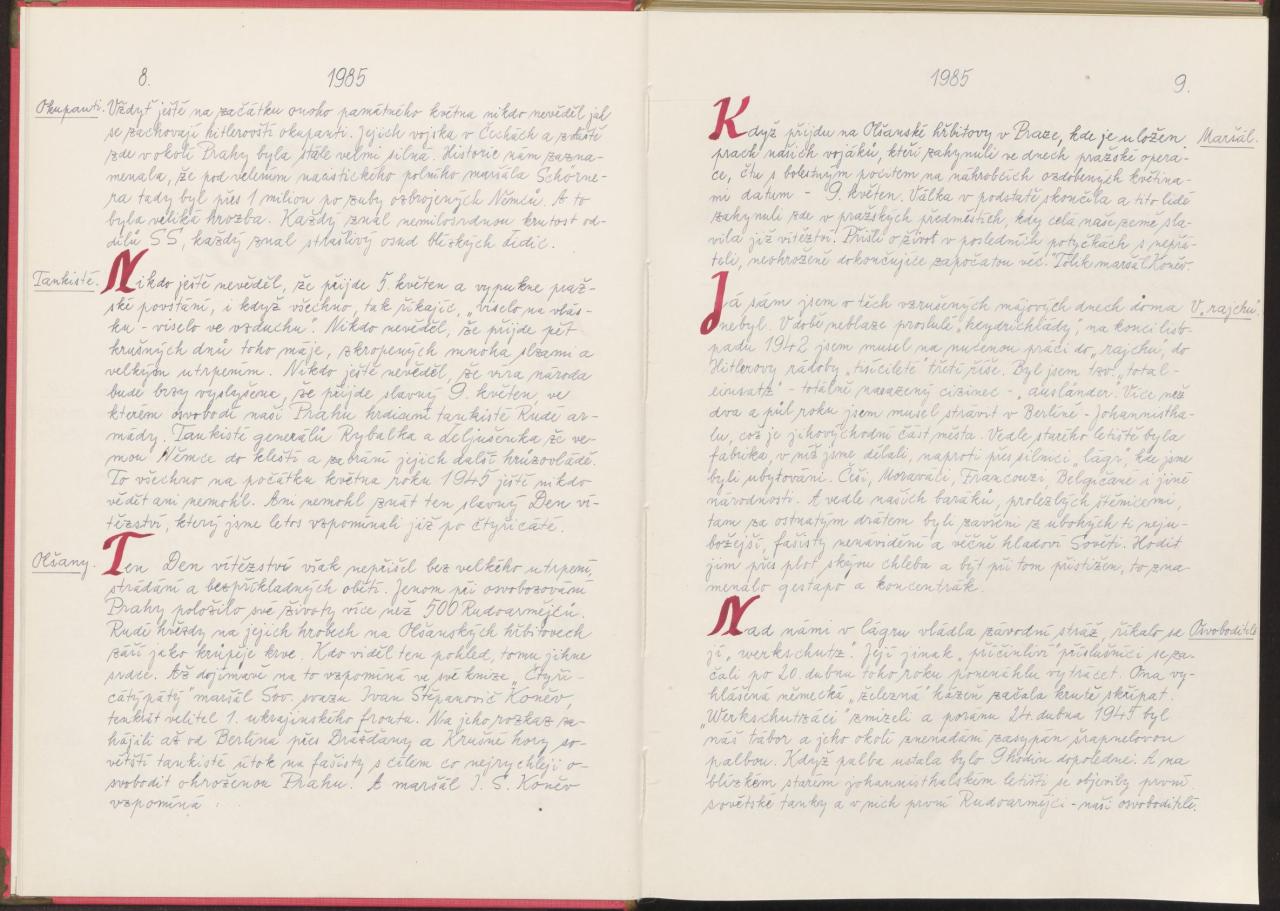 8. 1985
Okupanti. Vždyť ještě na začátku onoho památného května nikdo nevěděl jak
se zachovají hitlerovští okupanti. Jejich vojska v Čechách a zvláště
zde v okolí Prahy byla stále velmi silná. Historie nám zazna-
menala, že pod velením nacistického polního maršála Schörne-
ra tady byl přes 1 milion po zuby ozbrojených Němců. A to
byla veliká hrozba. Každý znal nemilosrdnou krutost od-
dílů SS, každý znal strašlivý osud blízkých Lidic.
Tankisté. Nikdo ještě nevěděl, že přijde 5. květen a vypukne praž-
ské povstání, i když všechno, tak říkajíc, "viselo na vlás-
ku - viselo ve vzduchu". Nikdo nevěděl, že přijde pět
krušných dnů toho máje, zkropených mnoha slzami a
velkým utrpením. Nikdo ještě nevěděl, že víra národa
bude brzy vyslyšena, že přijde slavný 9. květen, ve
kterém osvobodí naši Prahu hrdinní tankisté Rudé ar-
mády. Tankisté generálů Rybalka a Leljušenka že ve-
mou Němce do kleští a zabrání jejich další hrůzovládě.
To všechno na počátku května roku 1945 ještě nikdo
vědět ani nemohl. Ani nemohl znát ten slavný Den ví-
tězství, který jsme letos vzpomínali již po čtyřicáté.
Olšany. Ten Den vítězství však nepřišel bez velkého utrpení,
strádání a bezpříkladných obětí. Jenom při osvobozování
Prahy položilo své životy více než 500 Rudoarmějců.
Rudé hvězdy na jejich hrobech na Olšanských hřbitovech
září jako krůpěje krve. Kdo viděl ten pohled, tomu jihne
srdce. Až dojímavě na to vzpomíná ve své knize "Čtyři-
cátýpátý" maršál Sov. svazu Ivan Stěpanovič Koněv,
tenkrát velitel 1. ukrajinského frontu. Na jeho rozkaz za-
hájili až od Berlína přes Drážďany a Krušné hory so-
větští tankisté útok na fašisty s cílem co nejrychleji o-
svobodit ohroženou Prahu. A maršál I. S. Koněv
vzpomíná :
1985 9.
Když přijdu na Olšanské hřbitovy v Praze, kde je uložen Maršál.
prach našich vojáků, kteří zahynuli ve dnech pražské opera-
ce, čtu s bolestným pocitem na náhrobcích ozdobených květina-
mi datum - 9. květen. Válka v podstatě skončila a tito lidé
zahynuli zde v pražských předměstích, kdy celá naše země sla-
vila již vítězství. Přišli o život v posledních potyčkách s nepřá-
teli, neohroženě dokončujíce započatou věc." Tolik maršál Koněv.
Já sám jsem o těch vzrušených májových dnech doma V "rajchu".
nebyl. V době neblaze proslulé "heydrichiády", na konci listo-
padu 1942 jsem musel na nucenou práci do "rajchu", do
Hitlerovy rádoby "tisícileté" třetí říše. Byl jsem tzv. "total-
einsatz" - totálně nasazený cizinec - "ausländer". Více než
dva a půl roku jsem musel strávit v Berlíně - Johannistha-
lu, což je jihovýchodní část města. Vedle starého letiště byla
fabrika, v níž jsme dělali, naproti přes silnici "lágr", kde jsme
byli ubytováni. Češi, Moraváci, Francouzi, Belgičané i jiné
národnosti. A vedle našich baráků, prolezlých štěnicemi,
tam za ostnatým drátem byli zavřeni z ubohých ti neju-
božejší, fašisty nenáviděni a věčně hladoví Sověti. Hodit
jim přes plot skývu chleba a být při tom přistižen, to zna-
menalo gestapo a koncentrák.
Nad námi v lágru vládla závodní stráž, říkalo se Osvoboditelé
jí "werkschutz". Její jinak "přičinliví" příslušníci se za-
čali po 20. dubnu toho roku pomenáhlu vytrácet. Ona vy-
hlášená německá "železná" kázeň začala krutě skřípat.
"Werkschutzáci" zmizeli a poránu 24. dubna 1945 byl
náš tábor a jeho okolí znenadání zasypán šrapnelovou
palbou. Když palba ustala bylo 9 hodin dopoledne. A na
blízkém starém johannisthalském letišti se objevily první
sovětské tanky a v nich první Rudoarmějci - naši osvoboditelé.